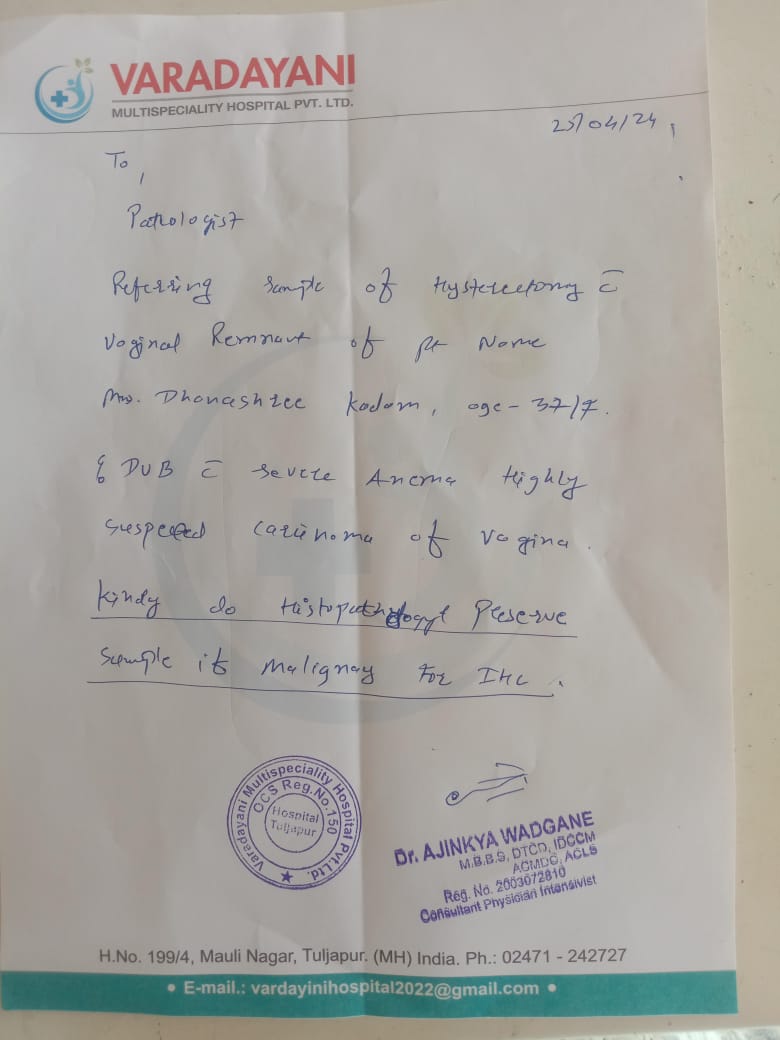 VARADAYANI
MULTISPECIALITY HOSPITAL PVT. LTD.
25/04/24,
To,
Pathologist
Referring sample of Hysterectomy c̄
Vaginal Remnant of pt Name
Mrs. Dhanashree Kadam, age - 37/F.
c̄ DUB c̄ severe Anema Highly
suspected carcinoma of vagina.
Kindy do Histopathology Preserve
Sample if Malignay For IHC.
Varadayani Multispeciality Hospital Pvt.Ltd.
OCS Reg.No.150
Hospital
Tuljapur
Dr. AJINKYA WADGANE
M.B.B.S, DTCD, IDCCM
ACMDC, ACLS
Reg. No. 2003072810
Consultant Physician Intensivist
H.No. 199/4, Mauli Nagar, Tuljapur. (MH) India. Ph.: 02471 - 242727
• E-mail.: vardayinihospital2022@gmail.com •